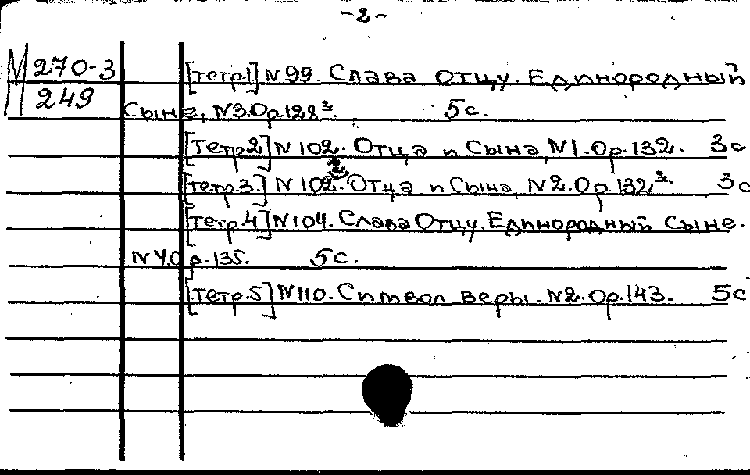 -2-
М 270-3 [тетр.1] N 99. Слава Отцу. Единородный
249 Сыне, N3. Ор.128³. 5с.
[Тетр.2] N 102. Отца и Сына, N1. Ор.132. 3с
[тетр.3.] N 102³. Отца и Сына, N2. Ор.132³. 3с
[тетр.4] N104. Слава Отцу. Единородный Сыне.
N4. Ор.135. 5с.
[Тетр.5] N110. Символ веры. N2. Ор.143. 5с